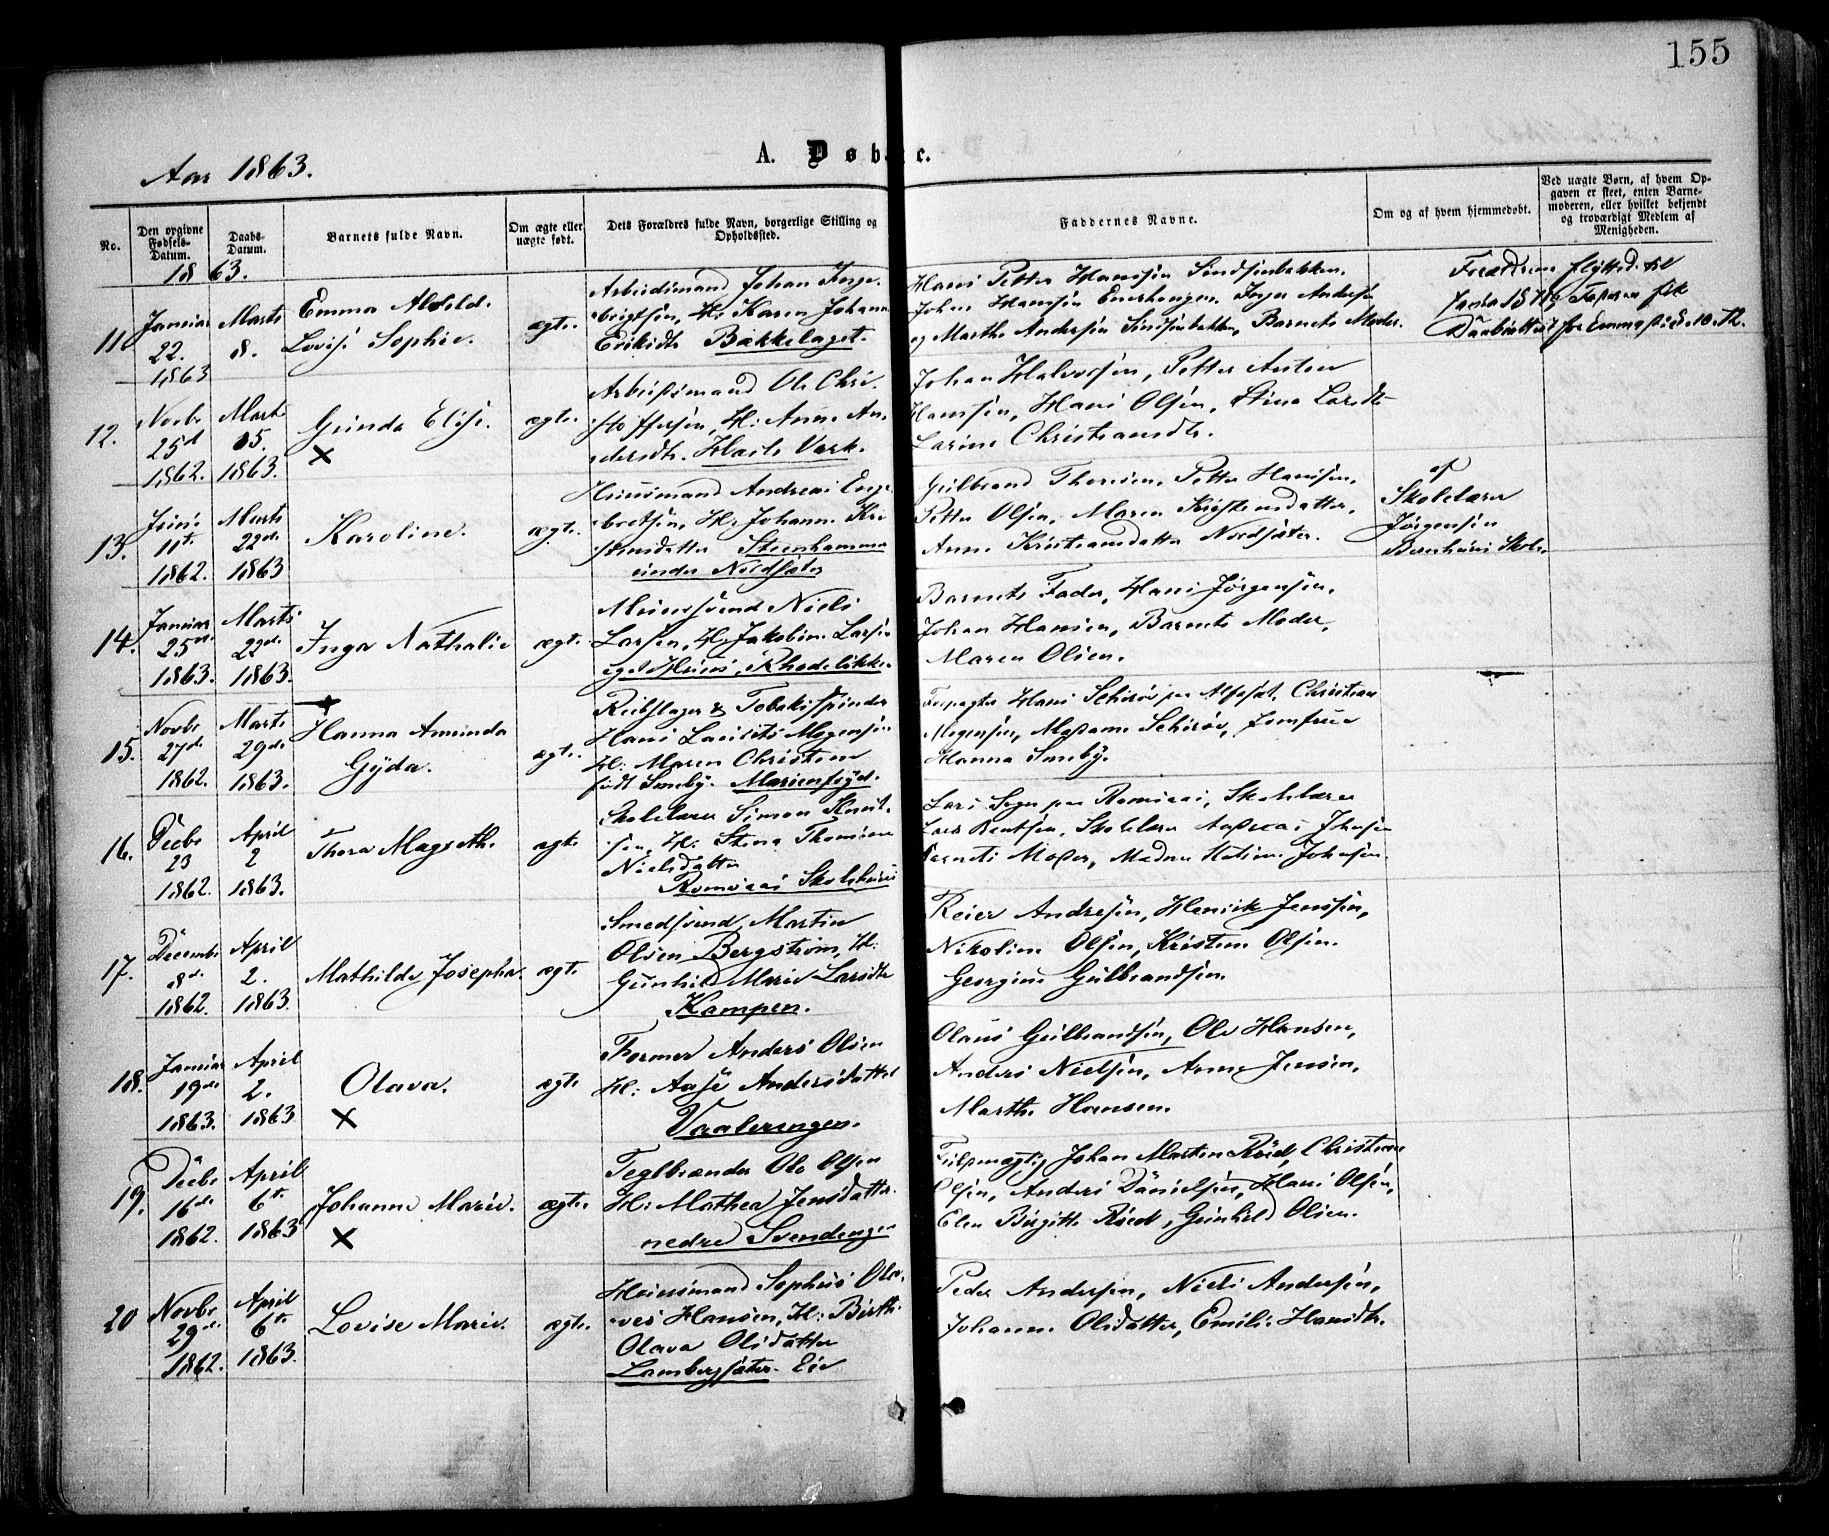 155
Aar 1863.
A. Døbte.
No.
Den opgivne Fødsels-Datum.
Daabs-Datum.
Barnets fulde Navn.
Om ægte eller uægte født.
Dets Forældres fulde Navn, borgerlige Stilling og Opholdssted.
Faddernes Navne.
Om og af hvem hjemmedøbt.
Ved uægte Børn, af hvem Opgaven er skeet, enten Barnemoderen, eller hvilket bekjendt og troværdigt Medlem af Menigheden.
1863.
11.
Januar
22.
1863
Marts
8.
Emma
Lovise Sophie.
ægte.
Arbeidsmand Johan Inge-
brigtsen, H: Karen Johanne
Eriksdtr Bækkelaget.
Hans Petter Hansen Simensbakken.
Johan Hansen Enerhougen, Inger Andersen
og Marthe Andersen Simensbakken, Barnets Moder.
Forældrene flyttede til
12.
Novbr
25d
1862.
Marts
15.
1863.
Gunda Elise.
×
ægte.
Arbeidsmand Ole Chri-
stoffersen, H: Anne An-
dersdtr. Hasle Værk.
Johan Halvorsen, Petter Anton
Hansen, Hans Olsen, Stine Larsdtr
Larine Christiansdtr.
13.
Juni
11te
1862.
Marts
22de
1863
Karoline.
ægte.
Huusmand Andreas Enge-
bretsen, H: Johanne Kri-
stensdatter Steenhammer
under Nordsæter
Gulbrand Thoresen, Petter Hansen,
Petter Olsen, Maren Kristensdatter,
Anne Kristiansdatter Nordsæter.
af
Skolelærer
Jørgensen
Skole.
14.
Januar
25de
1863.
Marts
22de
1863.
Inga Nathalie
ægte.
Muursvend Niels
Larsen, H: Jakobine Larsen
eget Huus, Rhodeløkke
Barnets Fader, Hans Jørgensen,
Johan Hansen, Barnets Moder,
Maren Olsen.
15.
Novbr
27de
1862.
Marts
29de
1863.
Hanna Amunda
Gyda.
ægte.
Reebslager & Tobakspinder
Hans Laurits Mogensen
H: Maren Christine
født Smeby. Marienfryd.
Forpagter Hans Schirøv paa Alfaset, Christian
Mogensen, Madame Schirøv, Jomfrue
Hanna Smeby.
16.
Decbr
23
1862.
April
2
1863.
Thora Magreth.
ægte
Skolelærer Simon Knut-
sen, H: Stina Thomine
Nielsdatter
Romsaas Skolehuus
Lars paa Romsaas, Skolelærer
Lars Berntsen, Skolelærer Andreas Johnsen
Barnets Moder, Madam Johnsen.
17.
Decembr
8de
1862.
April
2.
1863.
Mathilde Josepha.
ægte.
Smedsvend Martin
Olsen Bergstrøm, H:
Gunhild Marie Larsdtr
Kampen.
Reier Andresen, Henrik Jenssen,
Nikoline Olsen, Kristine Olsen.
Georgine Gulbrandsen.
18.
Januar
19de
1863.
April
2.
1863
Olava.
×
ægte
Former Anders Olsen
H: Aase Andersdatter
Vaalerengen.
Olaus Gulbrandsen, Ole Hansen,
Anders Nielsen, Anne Jensen,
Marthe Hansen.
19.
Decbr
16de
1862.
April
6te
1863
Johanne Marie.
×
ægte.
Teglbrænder Ole Olsen
H: Mathea Jensdatter.
nedre Svendengen
Fulpmægtig Johan Martin Røed, Christian
Olsen, Anders Danielsen, Hans Olsen,
Elen Birgitte Røed, Gunhild Olsen.
20
Novbr
29de
1862.
April
6te
1863.
Lovise Marie.
ægte.
Huusmand Sophus Ola-
ves Hansen, H: Birthe
Olava Olsdatter
Lambergsæter. Eie
Peder Andersen, Niels Andersen,
Johanne Olsdatter, Emilie Hansdtr.